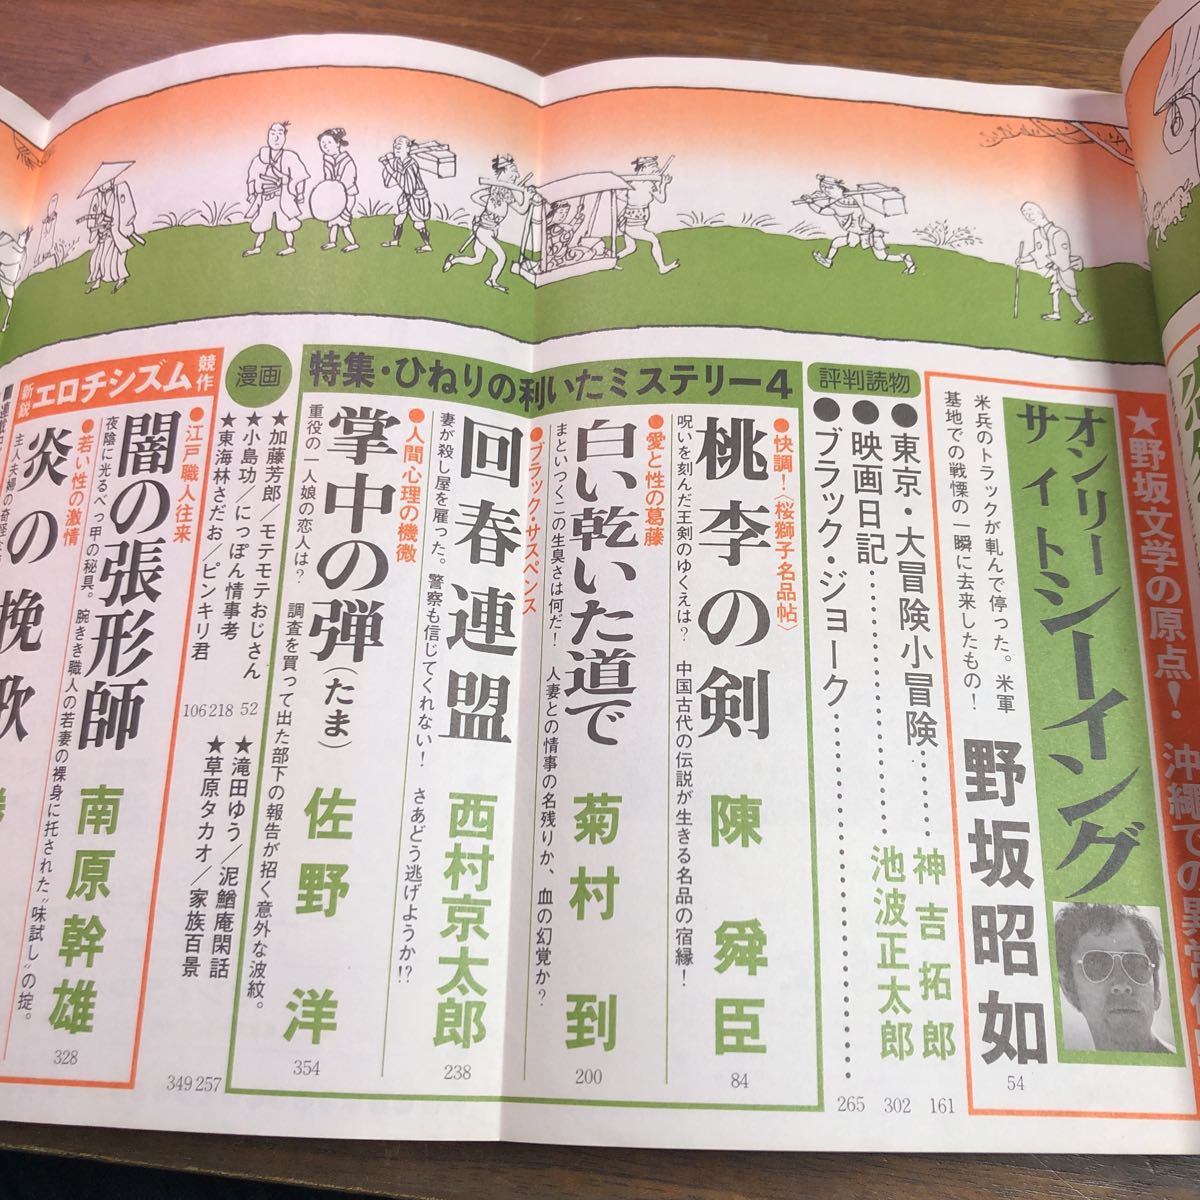 ★野坂文学の原点！
オンリー
サイトシーイング
米兵のトラックが軋んで停った。米軍
基地での戦慄の一瞬に去来したもの！
野坂昭如
54
評判読物
●東京・大冒険小冒険……神吉拓郎
161
●映画日記……………池波正太郎
302
●ブラック・ジョーク……………
265
特集・ひねりの利いたミステリー4
●快調！〈桜獅子名品帖〉
桃李の剣
陳舜臣
呪いを刻んだ王剣のゆくえは？ 中国古代の伝説が生きる名品の宿縁！
84
●愛と性の葛藤
白い乾いた道で
菊村到
まといつくこの生臭さは何だ！ 人妻との情事の名残りか、血の幻覚か？
200
●ブラック・サスペンス
回春連盟
西村京太郎
妻が殺し屋を雇った。警察も信じてくれない！ さあどう逃げようか!?
238
●人間心理の機微
掌中の弾（たま）
佐野洋
重役の一人娘の恋人は？ 調査を買って出た部下の報告が招く意外な波紋。
354
漫画
★加藤芳郎／モテモテおじさん
★小島功／にっぽん情事考
★東海林さだお／ピンキリ君
106 218 52
★滝田ゆう／泥鰌庵閑話
★草原タカオ／家族百景
349 257
新鋭エロチシズム競作
●江戸職人往来
闇の張形師
南原幹雄
夜陰に光るべっ甲の秘具。 腕きき職人の若妻の裸身に托された“味試し”の掟。
328
●若い性の激情
炎の挽歌